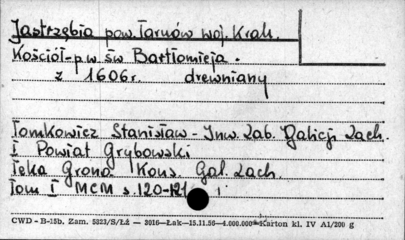 Jastrzębia pow. Tarnów woj. Krak.
Kościół - p.w. św Bartłomieja.
z 1606r. drewniany
Tomkowicz Stanisław - Inw. Zab. Galicji Zach.
I Powiat Grybowski
Teka Grona Kons. Gal. Zach.
Tom I MCM s. 120-121
CWD - B-15b. Zam. 5223/S/Łż — 3016—Łak—15.11.56—4.000.000 Karton kl. IV A1/200 g